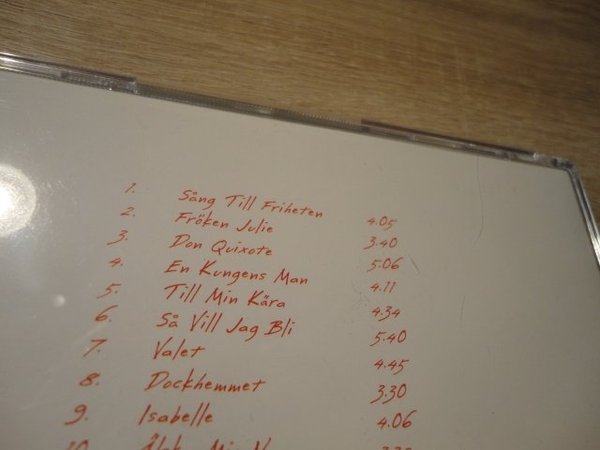 1. Sång Till Friheten 4.05
2. Fröken Julie 3.40
3. Don Quixote 5.06
4. En Kungens Man 4.11
5. Till Min Kära 4.34
6. Så Vill Jag Bli 5.40
7. Valet 4.45
8. Dockhemmet 3.30
9. Isabelle 4.06
10. Min